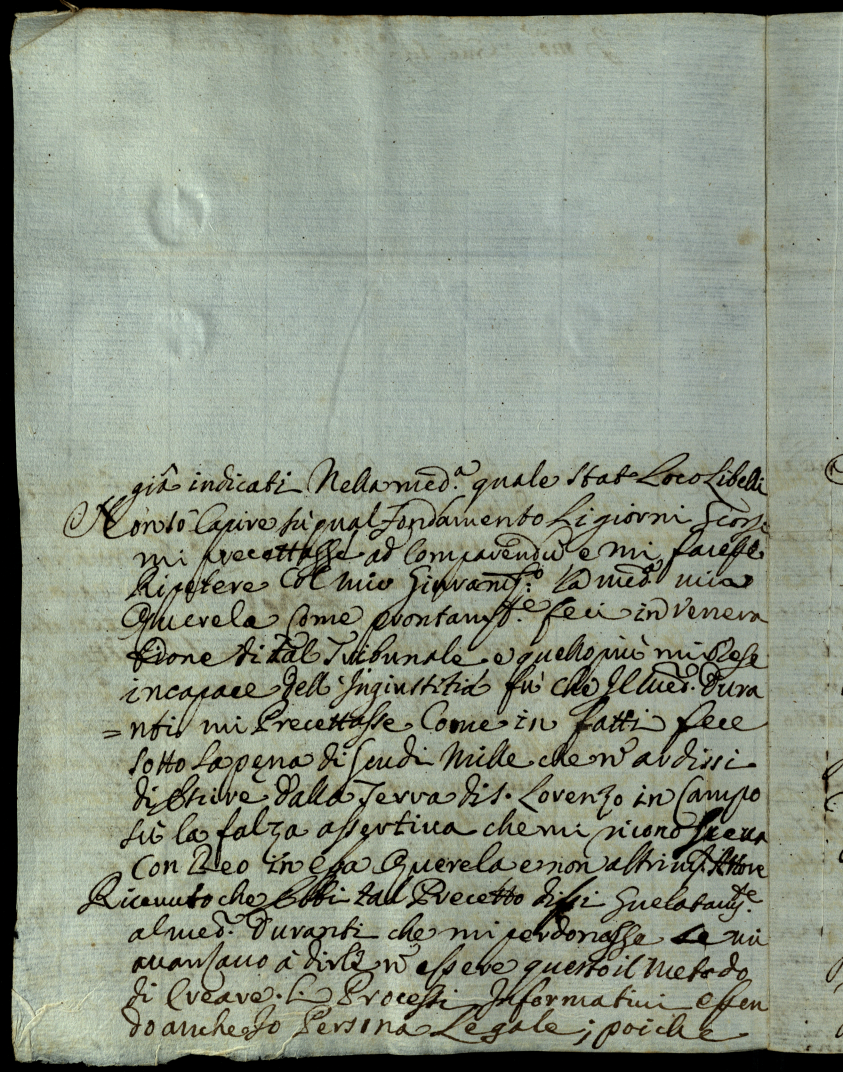 già indicati Nella med.ª quale stat Loco Libelli
Non sò Capire sù qual Fondamento Li giorni Scorsi
mi precettasse ad Comparendũ e mi facesse
Ripetere Col mio la med.ª mia
Querela Come prontam.te feci in venera
tione di tal Tribunale e quello più mi Rese
incapace dell'Ingiustitia fù che Il Med.º Dura
=nti mi Precettasse Come in fatti fece
sotto la pena di Scudi Mille che nõ ardissi
di Escire dalla Terra di S. Lorenzo in Campo
sù la falza assertiva che mi
Con Reo in essa Querela e non altrim.ti Attore
Ricevuto che Ebbi tal Precetto dissi
al med.º Duranti che mi perdonasse se mi
avansavo à dirli nõ essere questo il Metodo
di Creare Li Processi Informativi essen
do anche Io Persona Legale; poiche